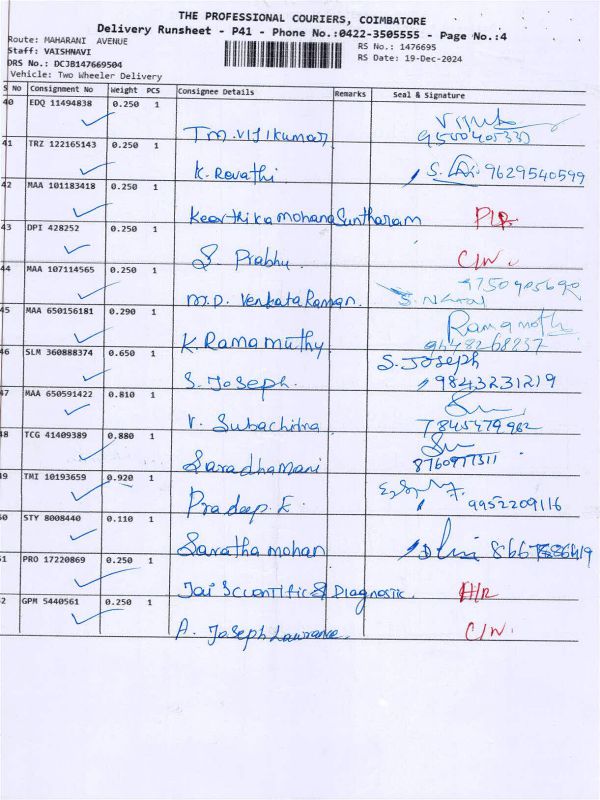 THE PROFESSIONAL COURIERS, COIMBATORE
Delivery Runsheet - P41 - Phone No.:0422-3505555 - Page No.:4
Route: MAHARANI AVENUE
RS No.: 1476695
Staff: VAISHNAVI
RS Date: 19-Dec-2024
DRS No.: DCJB147669504
Vehicle: Two Wheeler Delivery
S No Consignment No Weight PCS Consignee Details Remarks Seal & Signature
40 EDQ 11494838 0.250 1
Tm. Vijikumar
41 TRZ 122165143 0.250 1
K. Revathi 9629540599
42 MAA 101183418 0.250 1
Keerthika mohana Suntharam
43 DPI 428252 0.250 1
S. Prabhu C/N.
44 MAA 107114565 0.250 1
M.D. Venkata Raman
45 MAA 650156181 0.290 1
K. Ramamuthy
46 SLM 360888374 0.650 1
S. Joseph. S. Joseph
9843231219
47 MAA 650591422 0.810 1
V. Subachitra 7845479982
48 TCG 41409389 0.880 1
Saradhamani 8760977311
49 TMI 10193659 0.920 1
Pradeep. E 9952209116
50 STY 8008440 0.110 1
Saratha mohan
51 PRO 17220869 0.250 1
Jai Scientific & Diagnostic.
52 GPM 5440561 0.250 1
A. Joseph Lawrance. C/N.